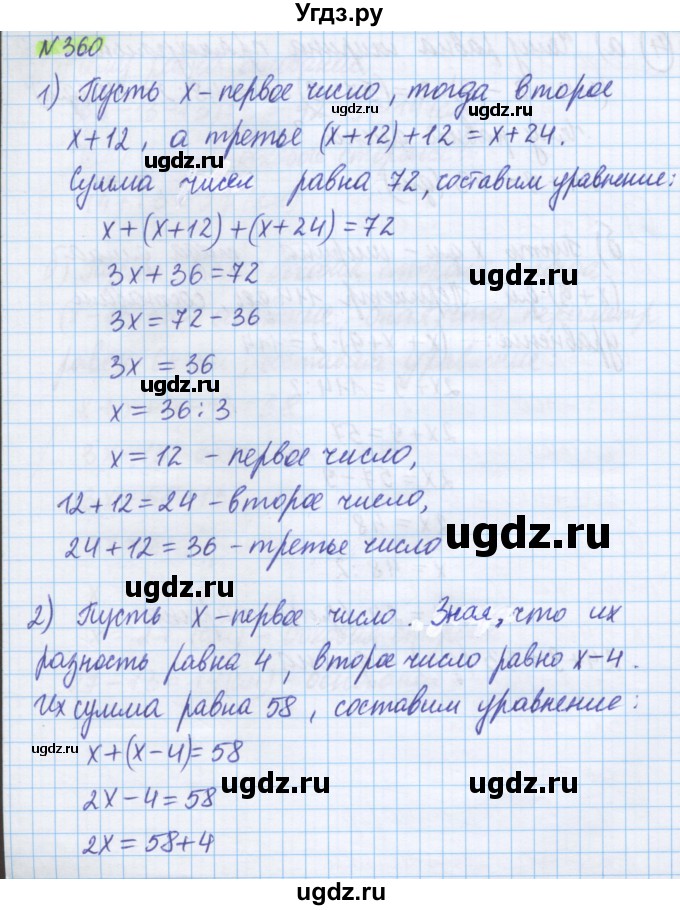 Угдз.ру
N 360
1) Пусть x - первое число, тогда второе
ugdz.ru ugdz.ru
x+12, а третье (x+12)+12 = x+24.
ugdz.ru
Сумма чисел равна 72, составим уравнение:
x+(x+12)+(x+24)=72
ugdz.ru ugdz.ru
3x+36=72
3x=72-36
3x = 36
ugdz.ru
x = 36:3
x=12 - первое число,
12+12=24 - второе число,
24+12=36 - третье число
ugdz.ru
ugdz.ru
2) Пусть x - первое число. Зная, что их
ugdz.ru
разность равна 4, второе число равно x-4.
Их сумма равна 58, составим уравнение:
ugdz.ru ugdz.ru
x+(x-4)=58
2x-4=58
ugdz.ru
2x=58+4
ugdz.ru